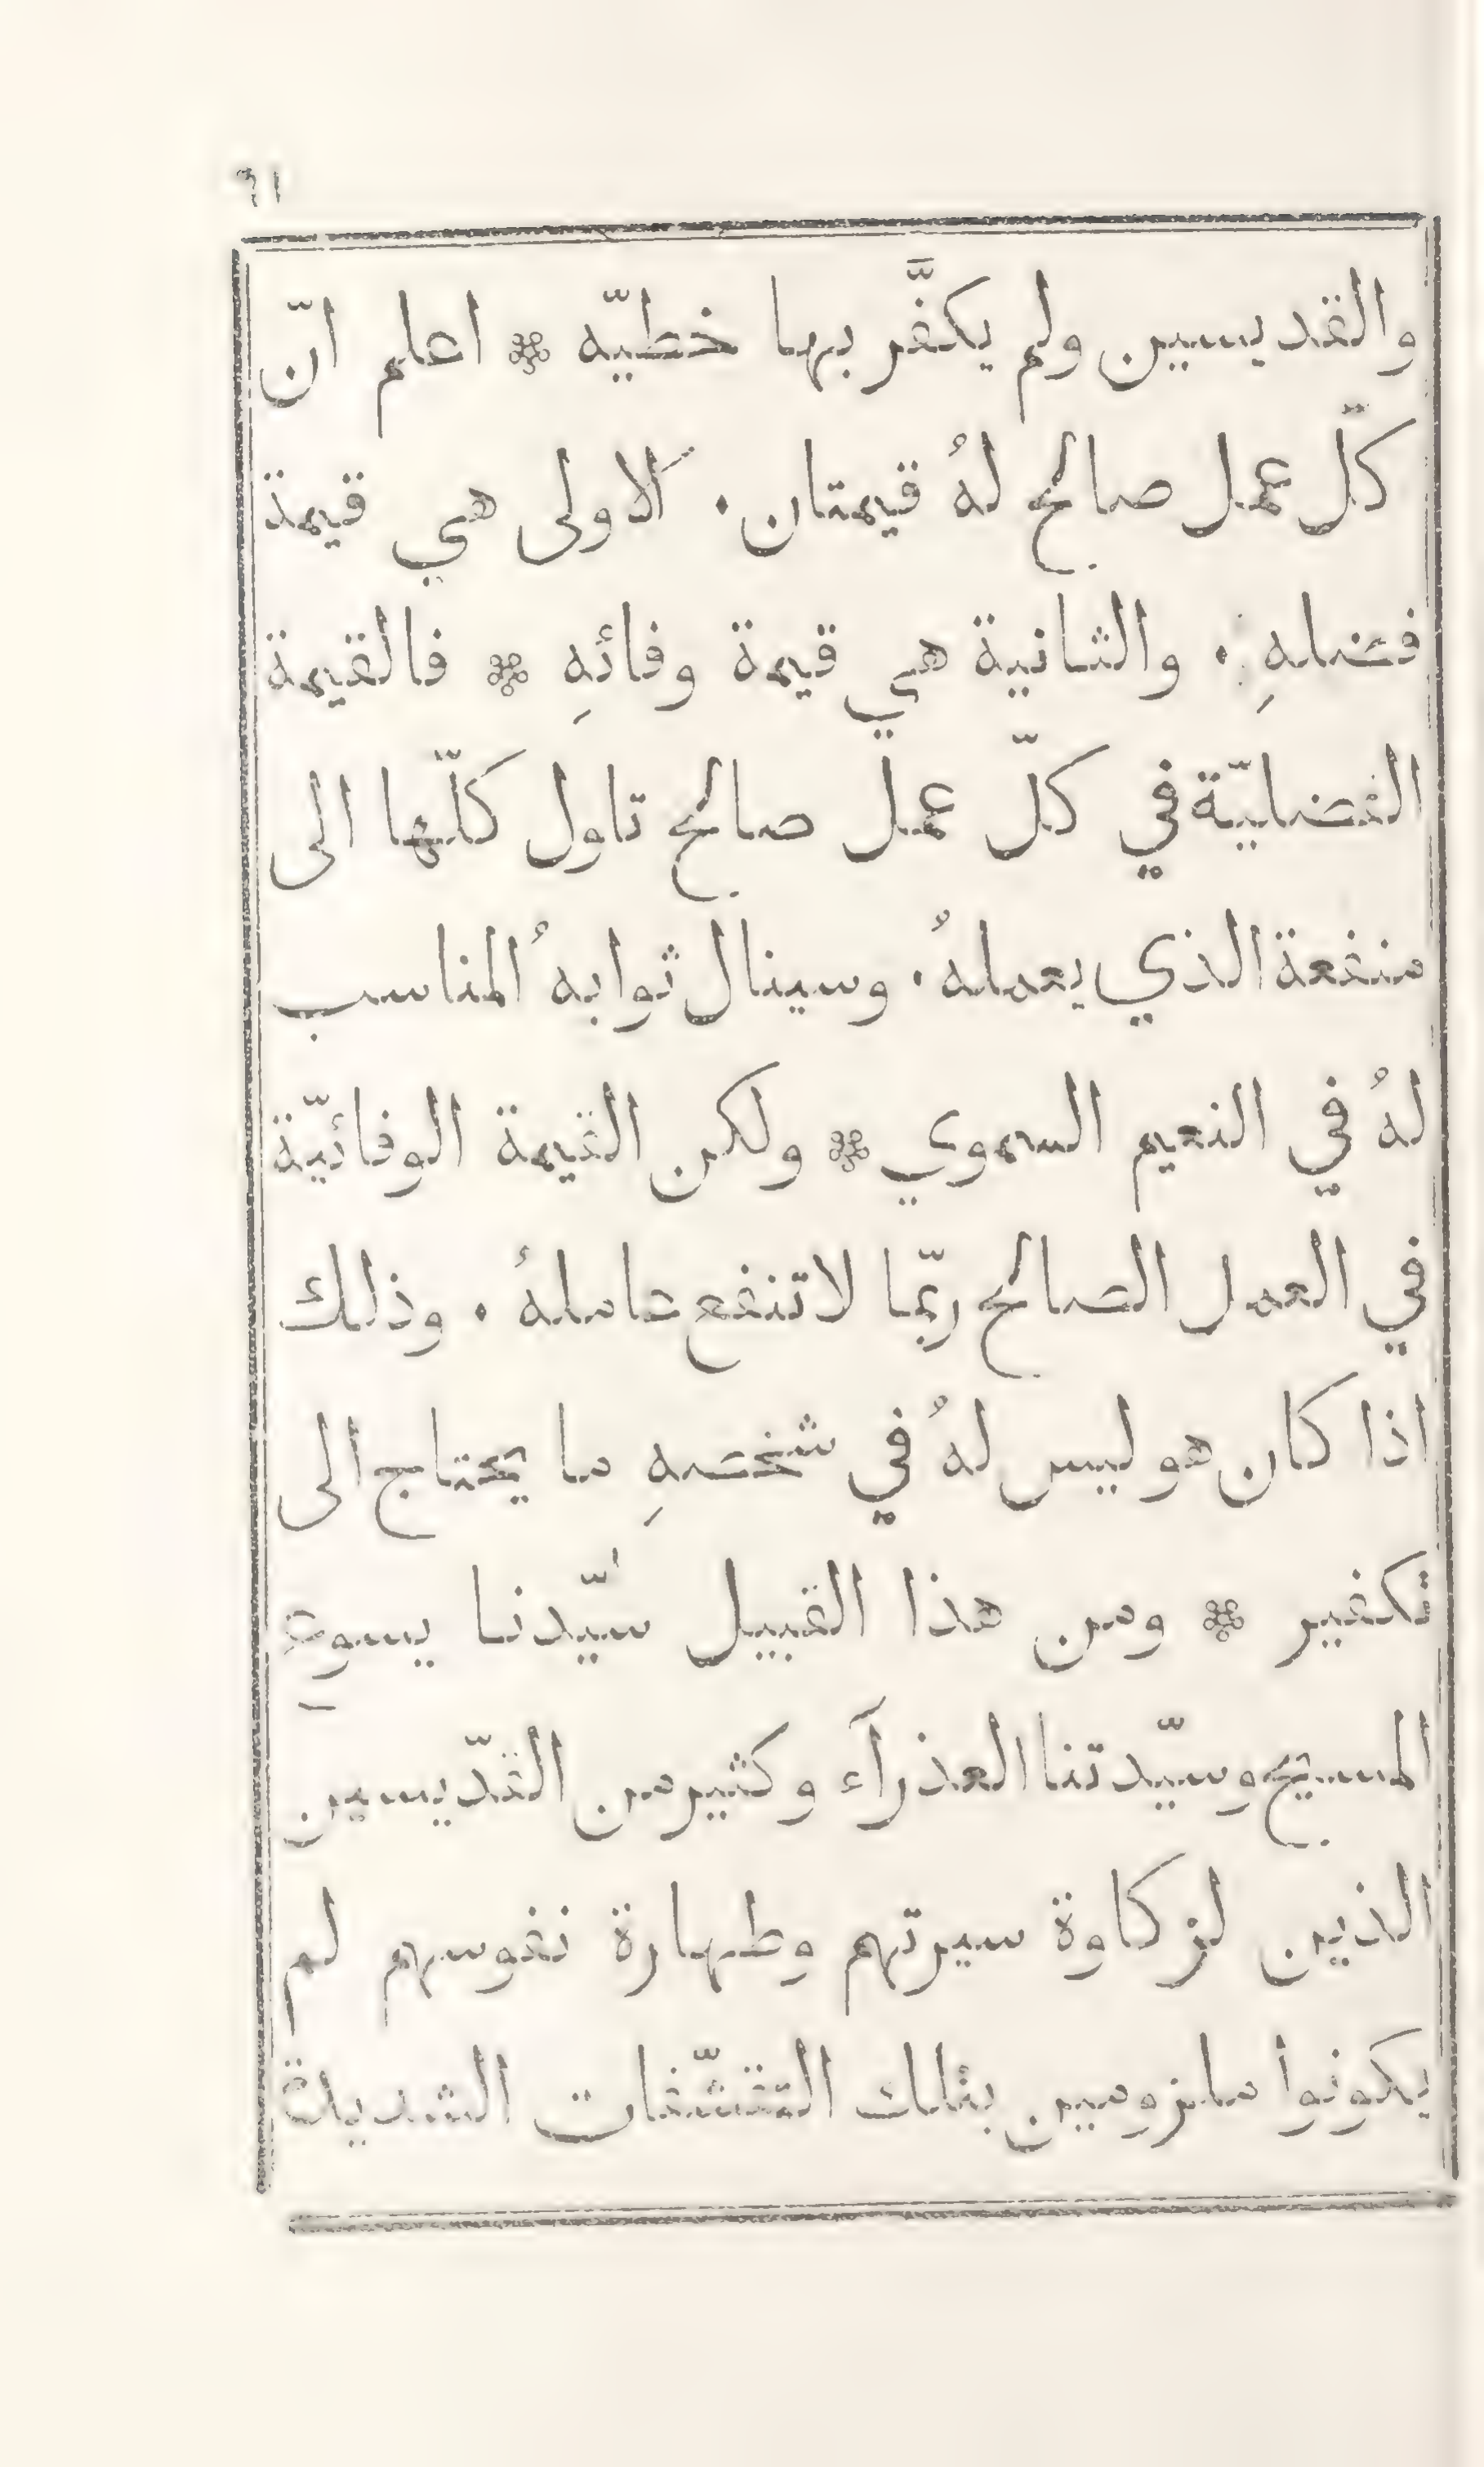 ٩١
والقديسين ولم يكفَّر بها خطيّه ❊ اعلم انّ
كلّ عمل صالح لهُ قيمتان. الاولى هي قيمة
فضلهِ. والثانية هي قيمة وفائهِ ❊ فالقيمة
الفضليّة في كلّ عمل صالح تاول كلّها الى
منفعة الذي يعملهُ. وسينال ثوابهُ المناسب
لهُ في النعيم السموي ❊ ولكن القيمة الوفائيّة
في العمل الصالح ربّما لا تنفع عاملهُ. وذلك
اذا كان هو ليس لهُ في شخصهِ ما يحتاج الى
تكفير ❊ ومن هذا القبيل سيّدنا يسوع
المسيح وسيّدتنا العذرآء وكثير من القدّيسين
الذين لزكاوة سيرتهم وطهارة نفوسهم لم
يكونوا ملزومين بتلك التقشّفات الشديدة